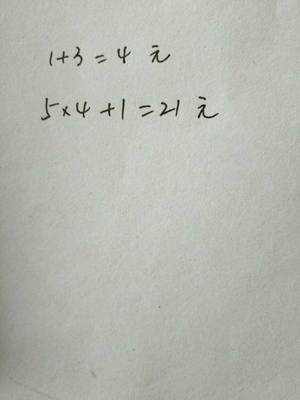 1+3=4 元
5×4+1=21 元